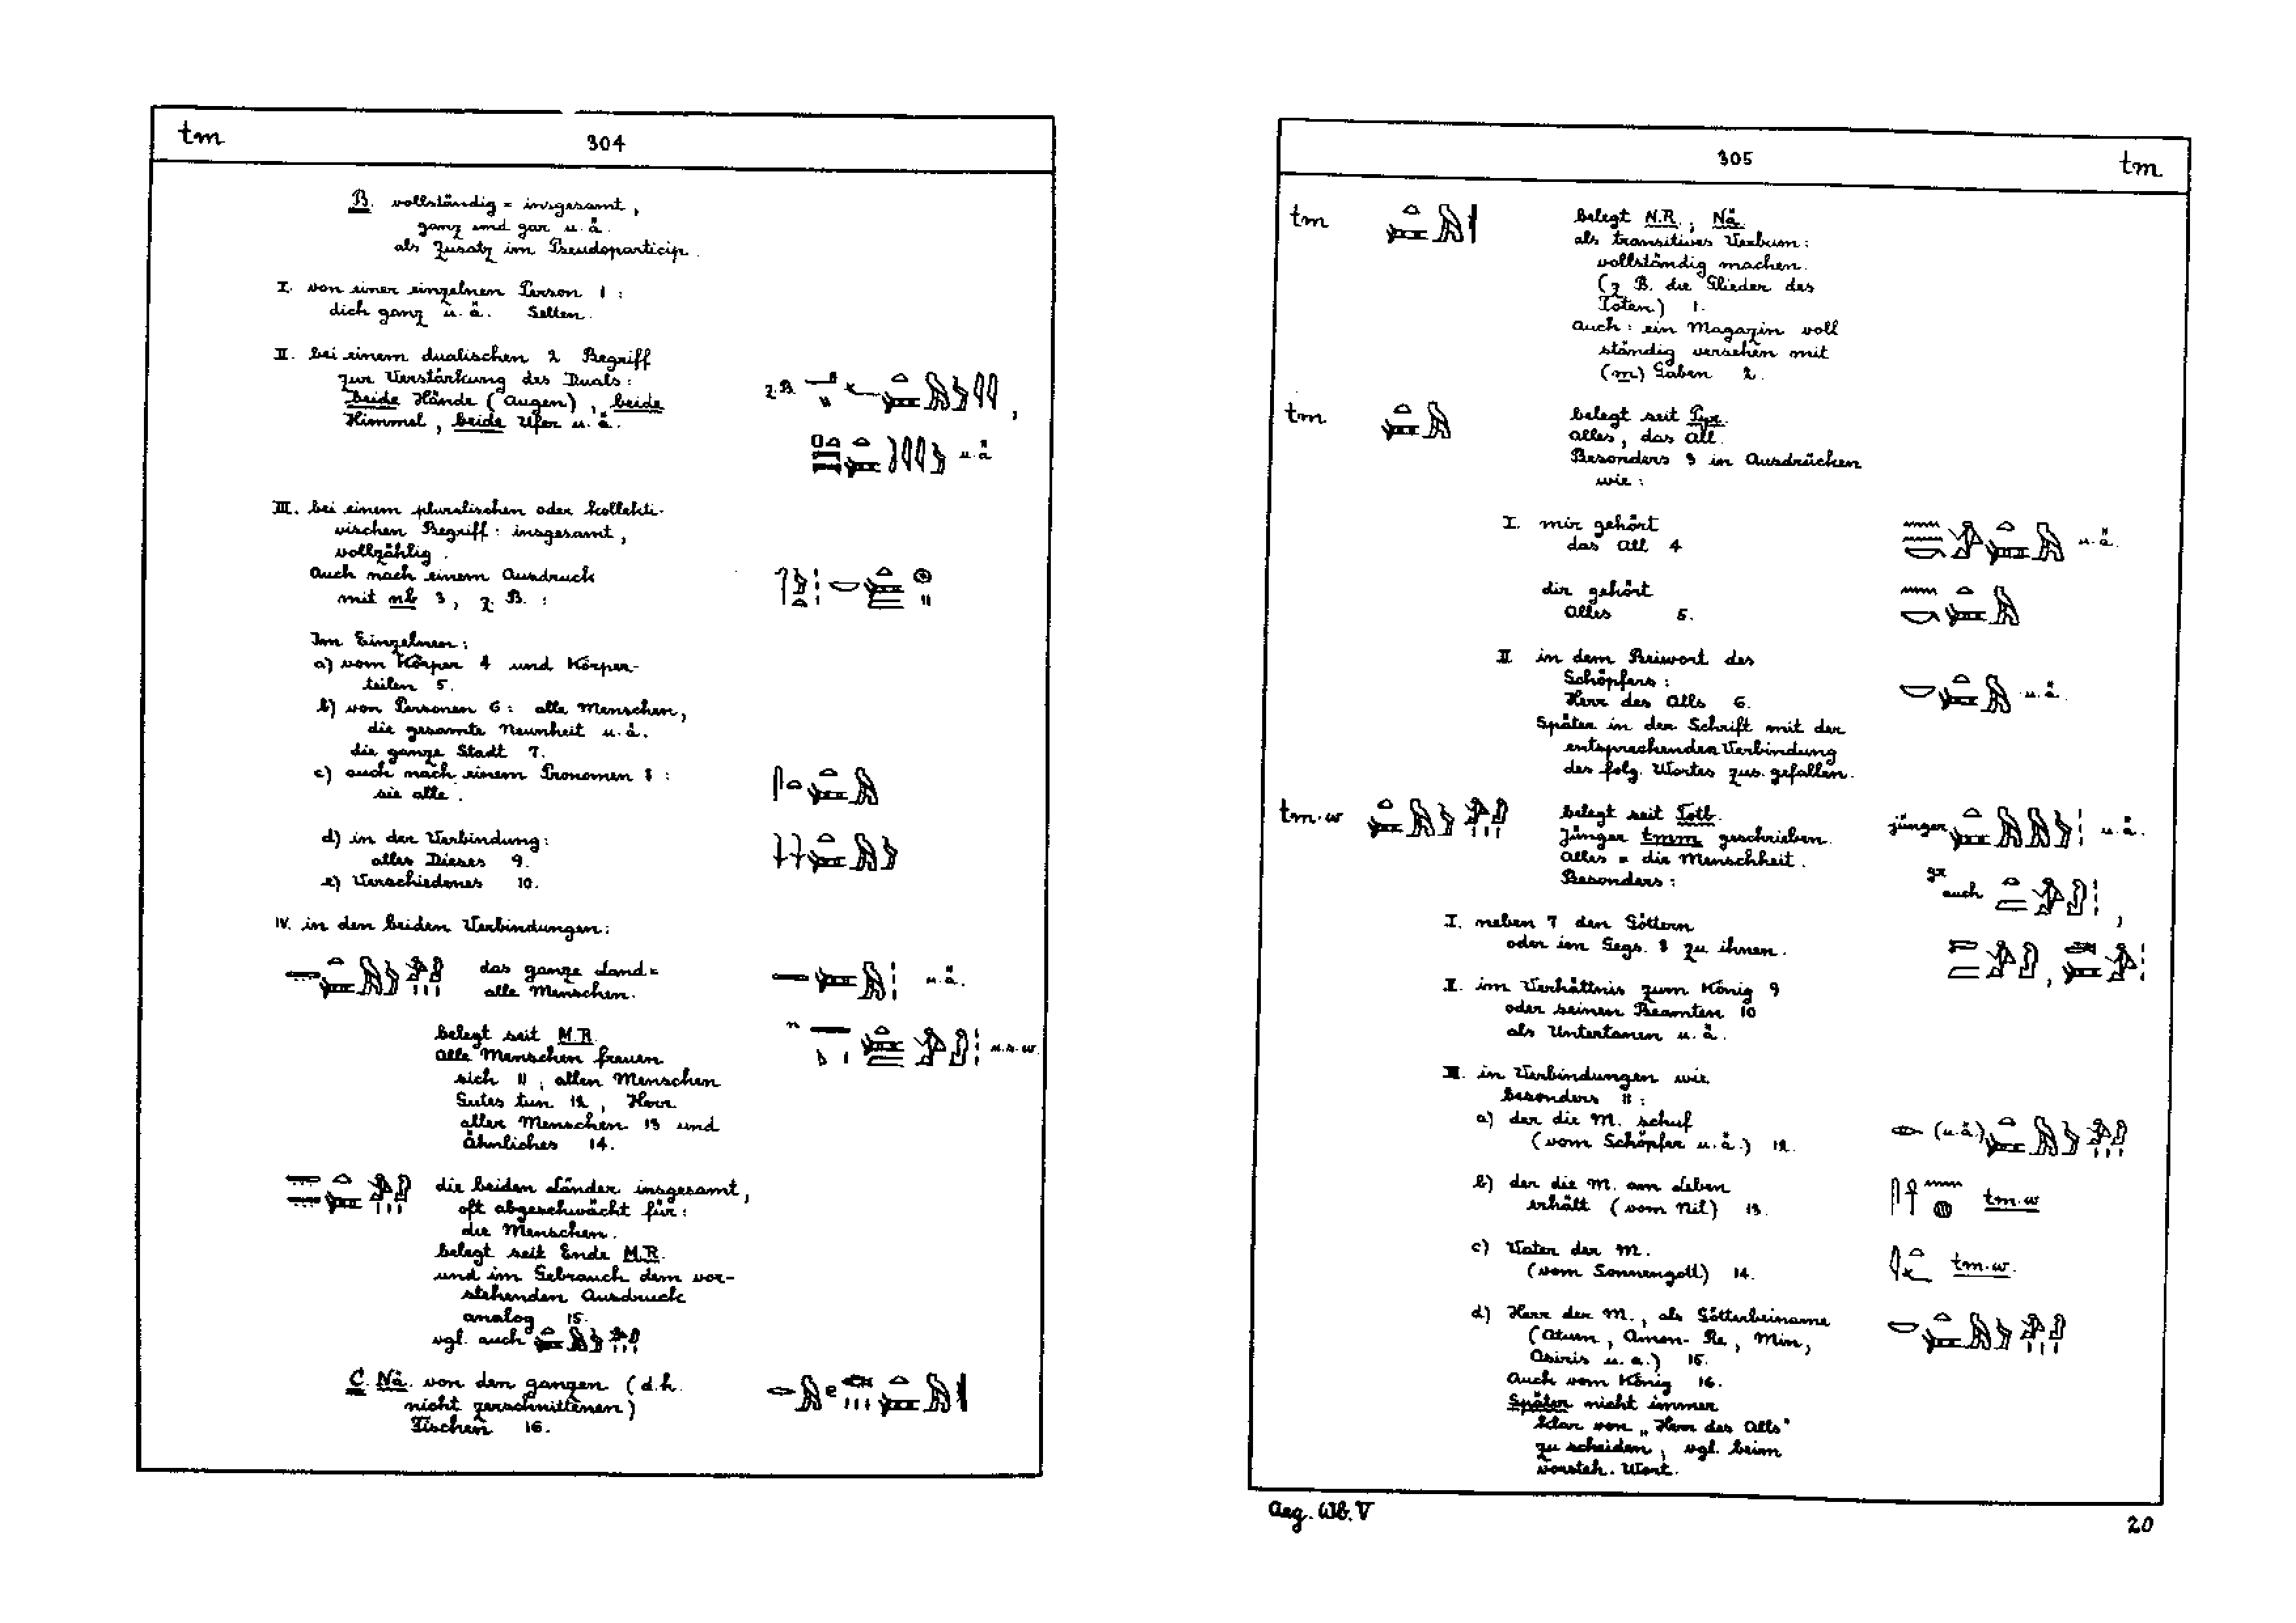 tm 304
B. vollständig = insgesamt,
ganz und gar u. ä.
als Zusatz im Pseudoparticip.
I. von einer einzelnen Person 1 :
dich ganz u. ä. Selten.
II. bei einem dualischen 2 Begriff
zur Verstärkung des Duals :
beide Hände (Augen), beide
Himmel, beide Ufer u. ä.
z. B.
u. ä
III. bei einem pluralischen oder kollekti-
vischen Begriff : insgesamt,
vollzählig.
Auch nach einem Ausdruck
mit nb 3, z. B. :
Im Einzelnen :
a) vom Körper 4 und Körper-
teilen 5.
b) von Personen 6 : alle Menschen,
die gesamte Neunheit u. ä.
die ganze Stadt 7.
c) auch nach einem Pronomen 8 :
sie alle.
d) in der Verbindung :
alles Dieses 9.
e) Verschiedenes 10.
IV. in den beiden Verbindungen :
das ganze Land =
alle Menschen.
u. ä.
belegt seit M.R.
alle Menschen freuen
sich 11, allen Menschen
Gutes tun 12, Herr
aller Menschen 13 und
Ähnliches 14.
u. s. w.
die beiden Länder insgesamt,
oft abgeschwächt für :
die Menschen.
belegt seit Ende M.R.
und im Gebrauch dem vor-
stehenden Ausdruck
analog 15.
vgl. auch
C. Nä. von den ganzen (d. h.
nicht zerschnittenen)
Fischen 16.
305 tm
tm belegt N.R., Nä.
als transitives Verbum :
vollständig machen.
(z. B. die Glieder des
Toten) 1.
Auch : ein Magazin voll
ständig versehen mit
(m) Gaben 2.
tm belegt seit Pyr.
alles, das All.
Besonders 3 in Ausdrücken
wie :
I. mir gehört
das All 4
u. ä.
dir gehört
Alles 5.
II in dem Beiwort des
Schöpfers :
Herr des Alls 6.
u. ä.
Später in der Schrift mit der
entsprechenden Verbindung
des folg. Wortes zus. gefallen.
tm·w belegt seit Totb.
Jünger tmm geschrieben.
Alles = die Menschheit.
Besonders :
jünger u. ä.
gr
auch
I. neben 7 den Göttern
oder im Gegs. 8 zu ihnen.
II. im Verhältnis zum König 9
oder seinen Beamten 10
als Untertanen u. ä.
III. in Verbindungen wie
besonders 11 :
a) der die M. schuf
(vom Schöpfer u. ä.) 12.
(u. ä.)
b) der die M. am Leben
erhält (vom Nil) 13.
tm·w
c) Vater der M.
(vom Sonnengott) 14.
tm·w.
d) Herr der M., als Götterbeiname
(Atum, Amon-Re, Min,
Osiris u. a.) 15.
Auch vom König 16.
Später nicht immer
klar von „Herr des Alls"
zu scheiden, vgl. beim
vorsteh. Wort.
Aeg. Wb. V 20